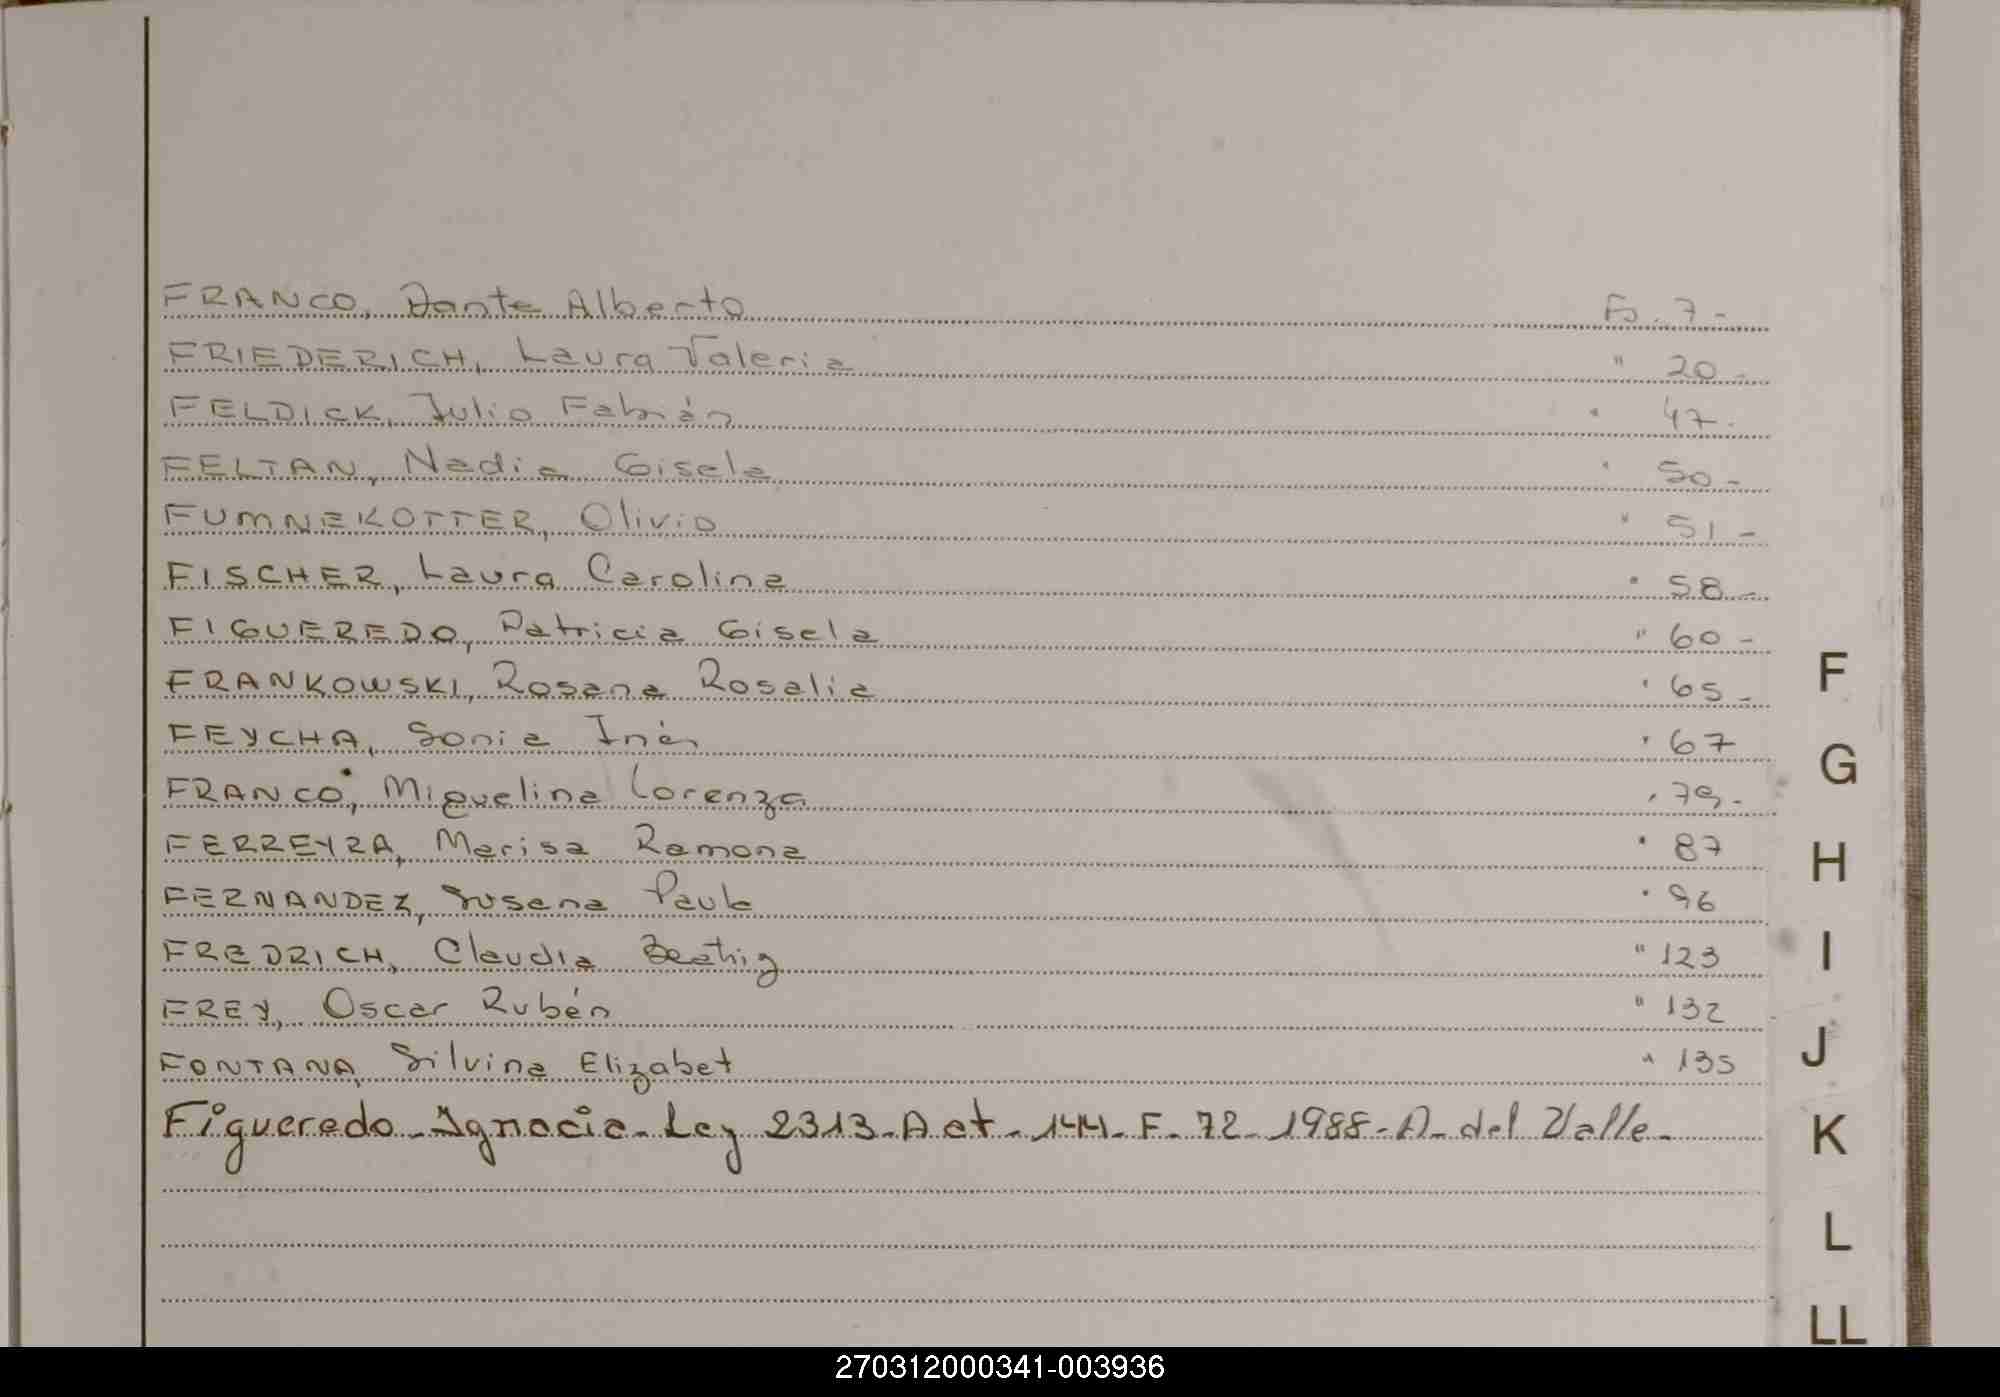 FRANCO, Dante Alberto Fs. 7-
FRIEDERICH, Laura Valeria " 20-
FELDICK, Julio Fabián " 47.
FELTAN, Nadia Gisela " 50-
FUMNEKOTTER, Olivio " 51-
FISCHER, Laura Carolina " 58-
FIGUEREDO, Patricia Gisela " 60-
FRANKOWSKI, Rosana Rosalia " 65-
FEYCHA, Sonia Inés " 67
FRANCO, Miguelina Lorenza " 79-
FERREYRA, Marisa Ramona " 87
FERNANDEZ, Susana Paula " 96
FREDRICH, Claudia Beatriz " 123
FREY, Oscar Rubén " 132
FONTANA, Silvina Elizabet " 135
Figueredo-Ignacia-Ley 2313-Act-144-F-72-1988-A-del Valle-
F
G
H
I
J
K
L
LL
270312000341-003936